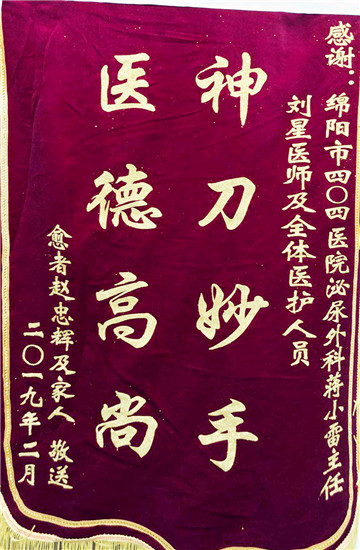 感谢：绵阳市四〇四医院泌尿外科蒋小雷主任
刘星医师及全体医护人员
神刀妙手
医德高尚
愈者赵忠辉及家人 敬送
二〇一九年二月